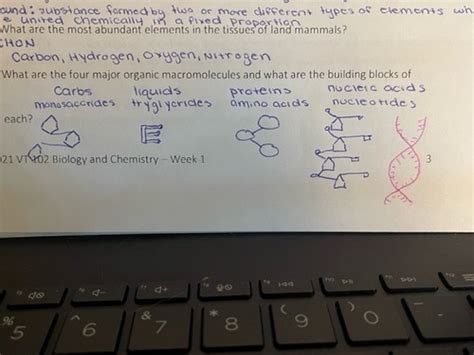 ound: substance formed by two or more different types of elements wh
e united chemically in a fixed proportion
What are the most abundant elements in the tissues of land mammals?
CHON
Carbon, Hydrogen, Oxygen, Nitrogen
What are the four major organic macromolecules and what are the building blocks of
Carbs liquids proteins nucleic acids
monosaccrides tryglycerides amino acids nucleotides
each?
021 VT 102 Biology and Chemistry – Week 1 3
% 5 ^ 6 & 7 * 8 ( 9 ) 0